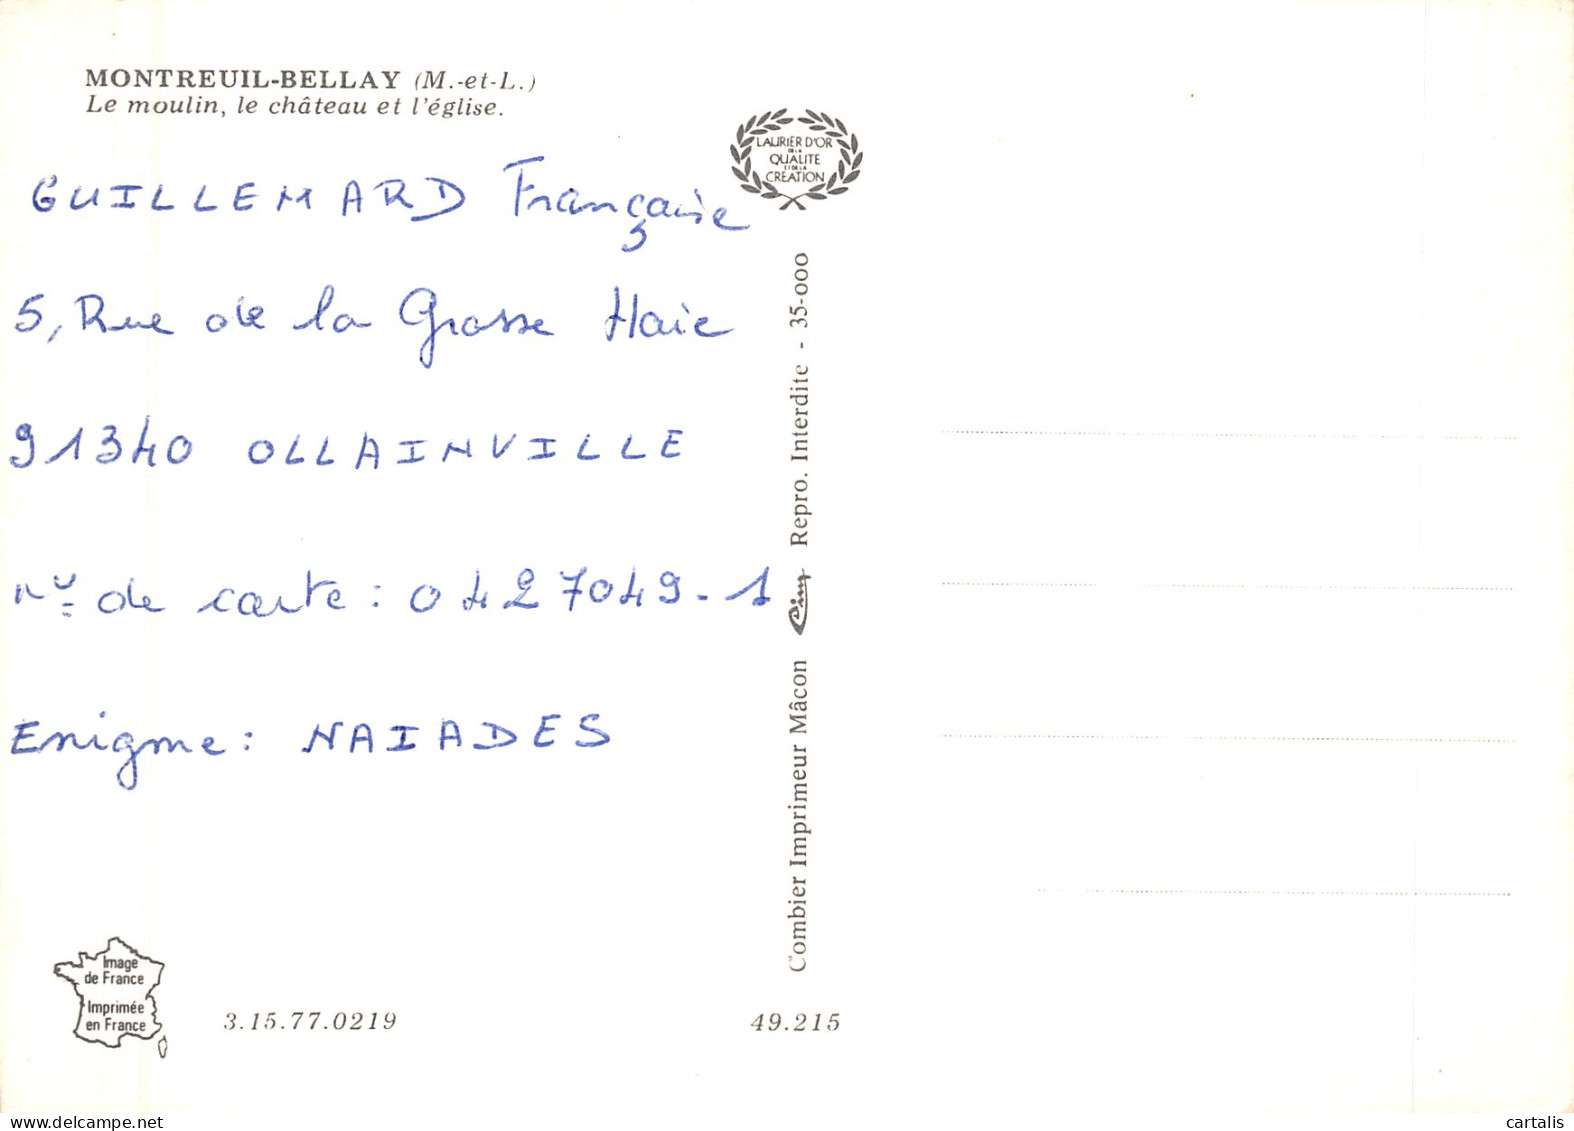 MONTREUIL-BELLAY (M.-et-L.)
Le moulin, le château et l'église.
LAURIER D'OR
DE LA
QUALITE
ET DE LA
CRÉATION
GUILLEMARD Françoise
5, Rue de la Grosse Haie
91340 OLLAINVILLE
n° de carte : 0427049-1
Enigme : NAIADES
Combier Imprimeur Mâcon Cim Repro. Interdite - 35-000
Image
de France
Imprimée
en France
3.15.77.0219
49.215
www.delcampe.net
cartalis